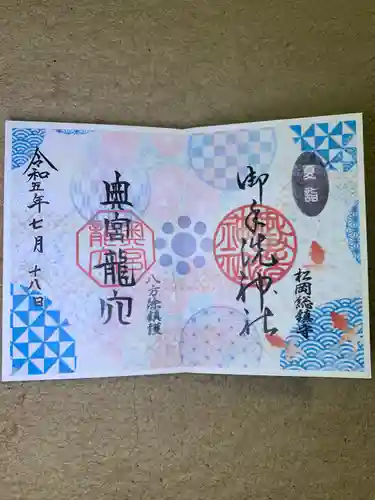 夏詣
御手洗神社
松岡総鎮守
八方除鎮護
奥宮龍穴
令和五年七月十八日